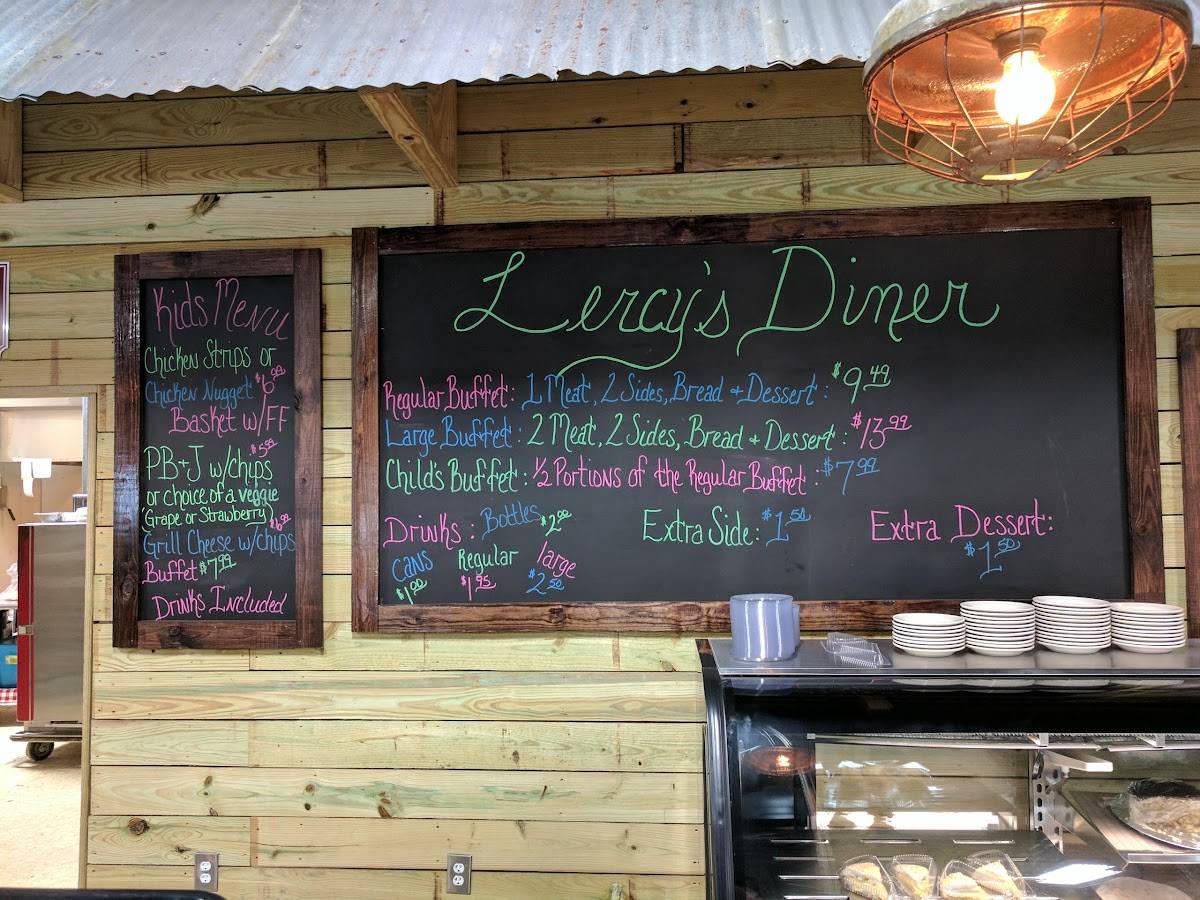 Kids Menu
Chicken Strips or
Chicken Nugget $6.99
Basket w/FF
$5.99
PB+J w/chips
or choice of a veggie
(Grape or Strawberry) $6.99
Grill Cheese w/chips
Buffet $7.99
Drinks Included
Leroy's Diner
Regular Buffet: 1 Meat, 2 Sides, Bread + Dessert: $9.49
Large Buffet: 2 Meat, 2 Sides, Bread + Dessert: $13.99
Child's Buffet: 1/2 Portions of the Regular Buffet: $7.99
Drinks: Bottles $2.00
Cans Regular large
$1.00 $1.95 $2.50
Extra Side: $1.50
Extra Dessert:
$1.50